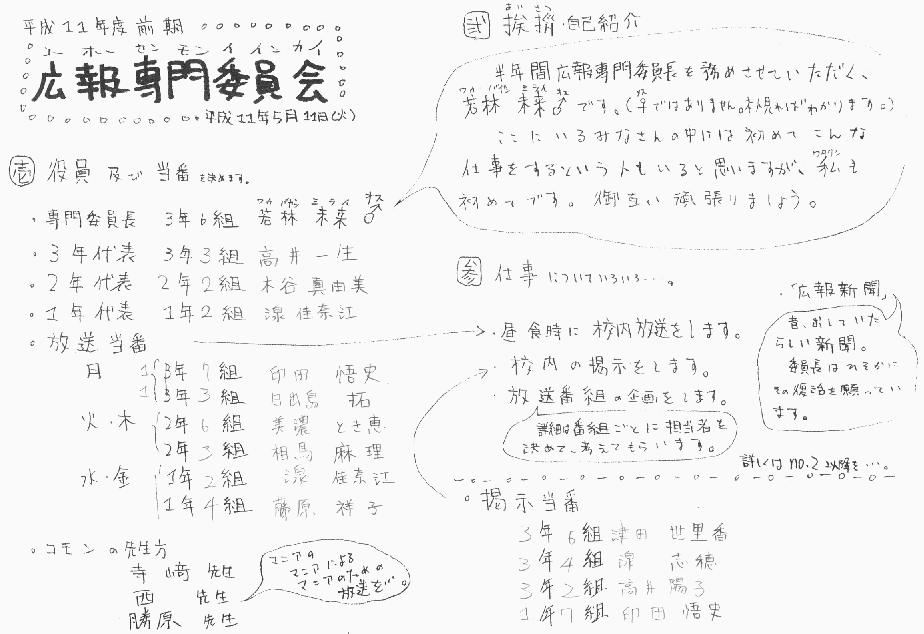 平成11年度前期
コーホーセンモンイインカイ
広報専門委員会
平成11年5月11日(火)
壱 役員及び当番を決めます。
・専門委員長 3年6組 若林 未来♂
ワカバヤシ ミライ オス
・3年代表 3年3組 高井一生
・2年代表 2年2組 木谷真由美
・1年代表 1年2組 湶佳奈江
・放送当番
月 1 3年7組 印田 悟史
1 3年3組 日出島 拓
火・木 2年6組 美濃 とき恵
2年3組 相馬 麻理
水・金 1年2組 湶 佳奈江
1年4組 藤原 祥子
・コモンの先生方
寺﨑 先生
西 先生
勝原 先生
マニアの
マニアによる
マニアのための
放送を…。
弐 挨拶・自己紹介
あい さつ
半年間広報専門委員長を務めさせていただく、
ワカバヤシ ミライ オス
若林 未来♂です。(♀ではありません。本規ればわかります。)
ここにいるみなさんの中には初めてこんな
仕事をするという人もいると思いますが、私も
ワタクシ
初めてです。御互い頑張りましょう。
参 仕事についていろいろ…。
・昼食時に校内放送をします。
・校内の掲示をします。
・放送番組の企画をします。
詳細は番組ごとに担当者を
決めて、考えてもらいます。
・「広報新聞」
昔、出していた
らしい新聞。
委員長はひそかに
その復活を願ってい
ます。
詳しくはno.2以降を…。
・掲示当番
3年6組 津田 世里香
3年4組 湶 志穂
3年2組 高井陽子
1年7組 印田 悟史